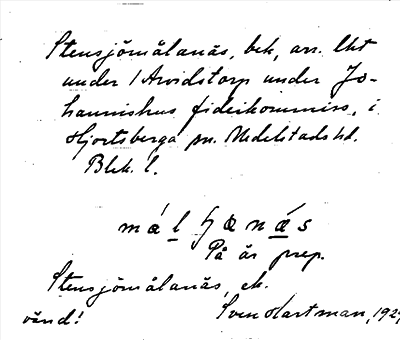 Stensjömålanäs, bek, arr. lht
under 1 Arvidstorp under Jo-
hannishus fideikommiss, i
Hjortsberga sn. Medelstads hd.
Blek. l.
målanäs
På är prep.
Stensjömålanäs, ek.
vänd! Sven Hartman, 192